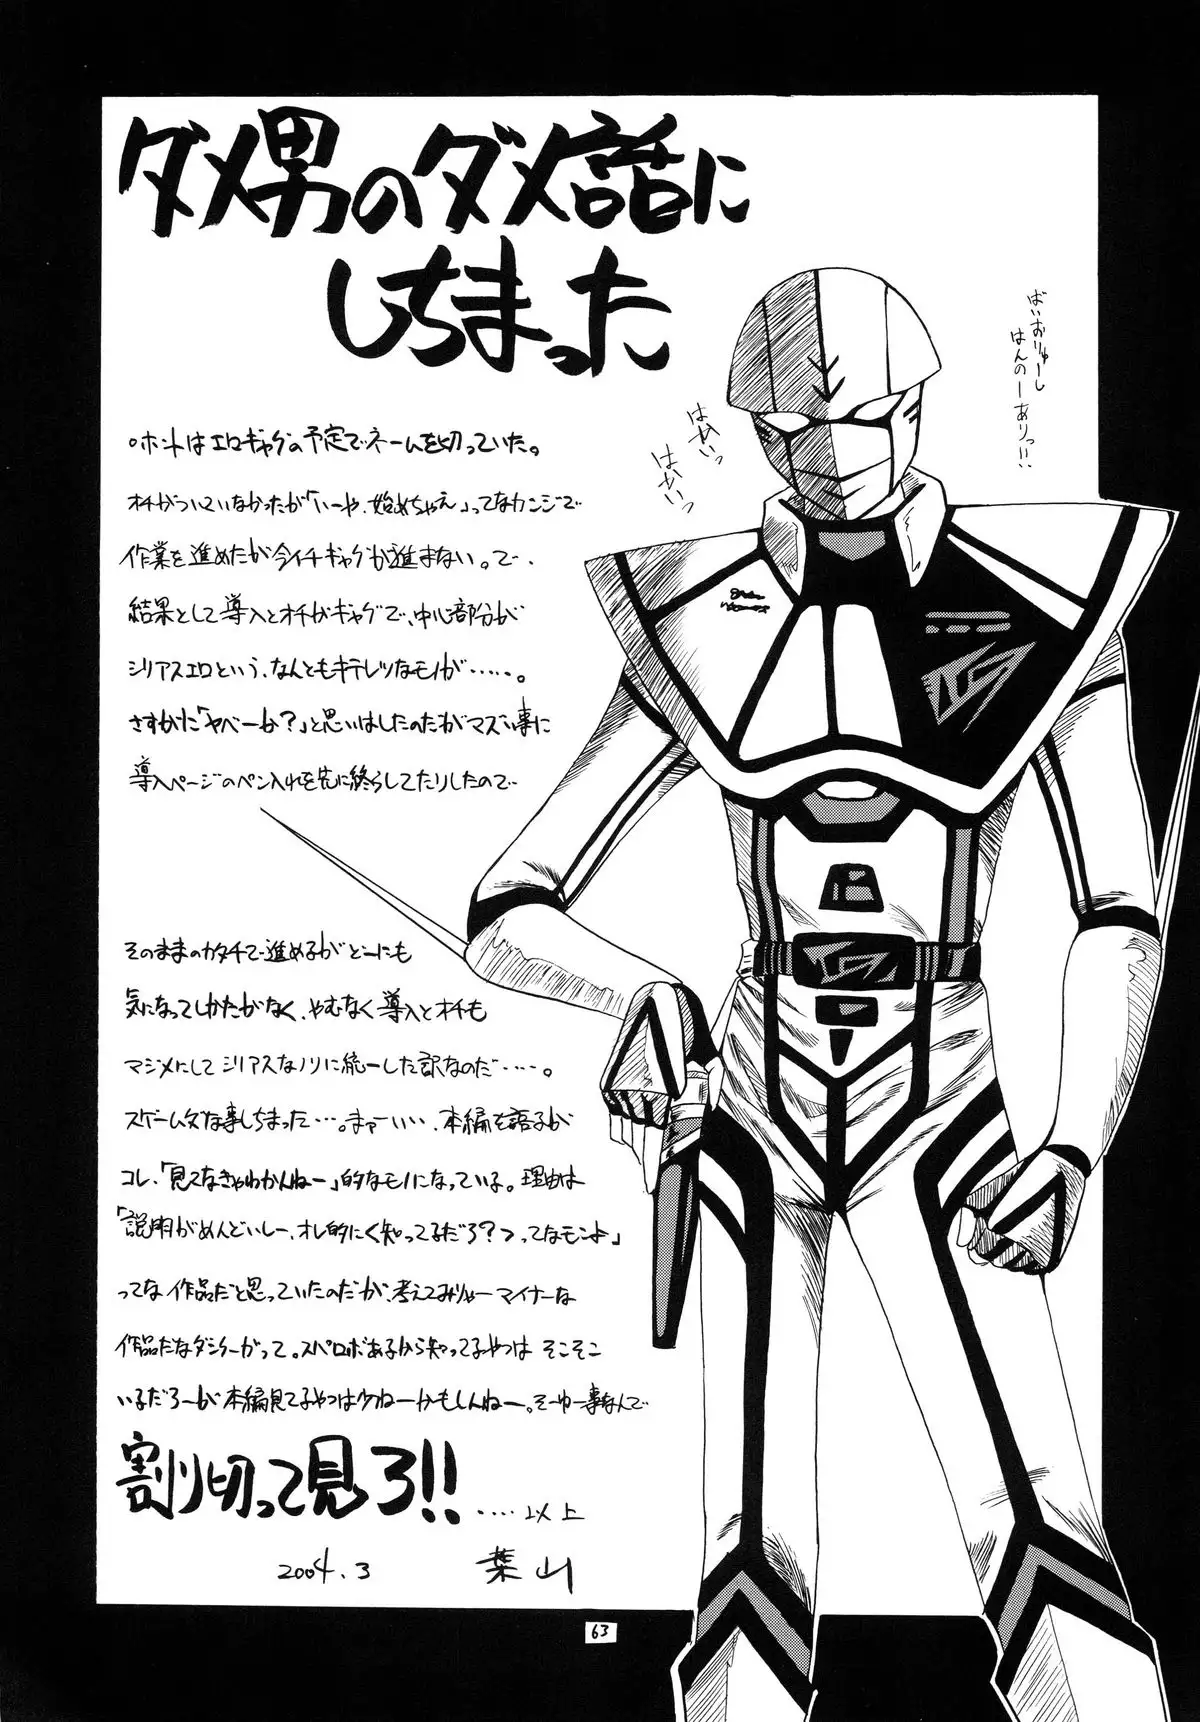 ダメ男のダメ話に
しちまった
ばいおりゅーし
はんのーありっ!!
はぁいっ
はぁいっ
。ホントはエロギャグの予定でネームを切っていた。
オチがついていなかったが「いーや、始めちゃえ」ってなカンジで
作業を進めたが今イチギャグが進まない。で、
結果として導入とオチがギャグで、中心部分が
シリアスエロという、なんともキテレツなモノが……。
さすがに「ヤベーか?」と思いはしたのだがマズい事に
導入ページのペン入れを先に終らしてたりしたので
そのままのカタチで進めるがどーにも
気になってしかたがなく、やむなく導入とオチも
マジメにしてシリアスなノリに統一した訳なのだ……。
スゲームダな事しちまった…。まァーいい、本編を語るが
コレ、「見てなきゃわかんねー」的なモノになっている。理由は
「説明がめんどいしー、オレ的にく知ってるだろ?>ってなモンよ」
ってな作品だと思っていたのだが、考えてみりゃーマイナーな
作品だなダンクーガって。スペロボあるから知ってるやつは そこそこ
いるだろーが本編見てるやつは少ねーかもしんねー。そーゆー事なんで
割り切って見ろ!!
....以上
2004.3 葉山
63